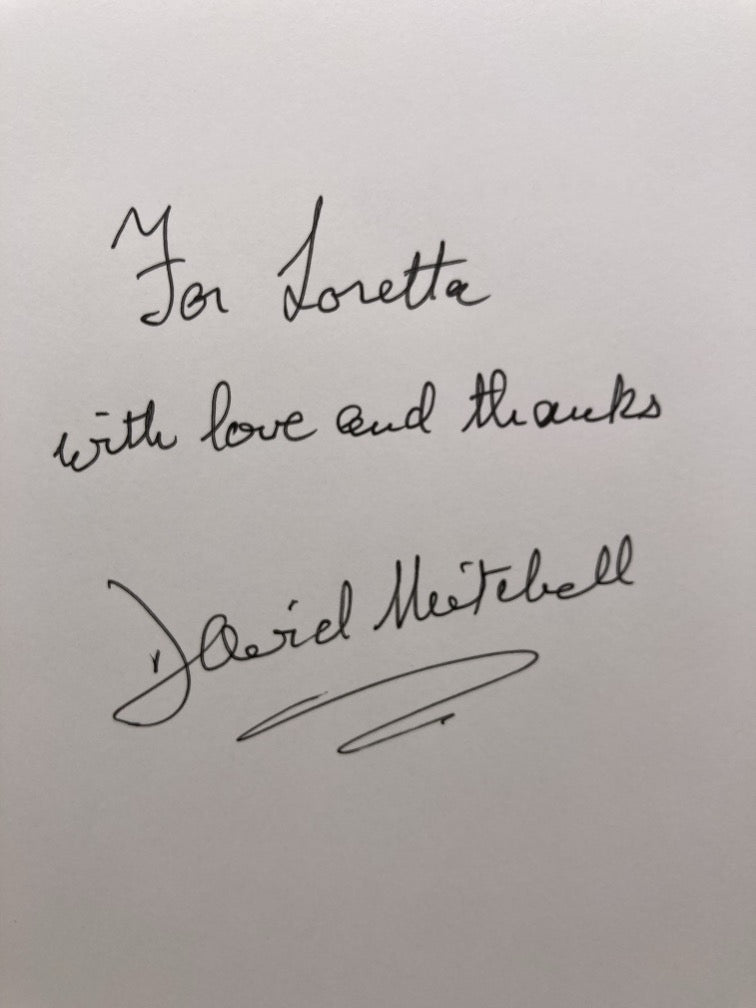 For Loretta
with love and thanks
David Mitchell